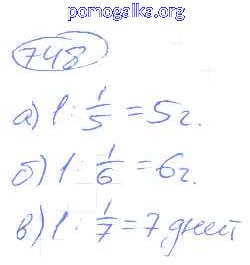 pomogalka.org
748
а) 1 : 1/5 = 5 г.
б) 1 : 1/6 = 6 г.
в) 1 : 1/7 = 7 дней